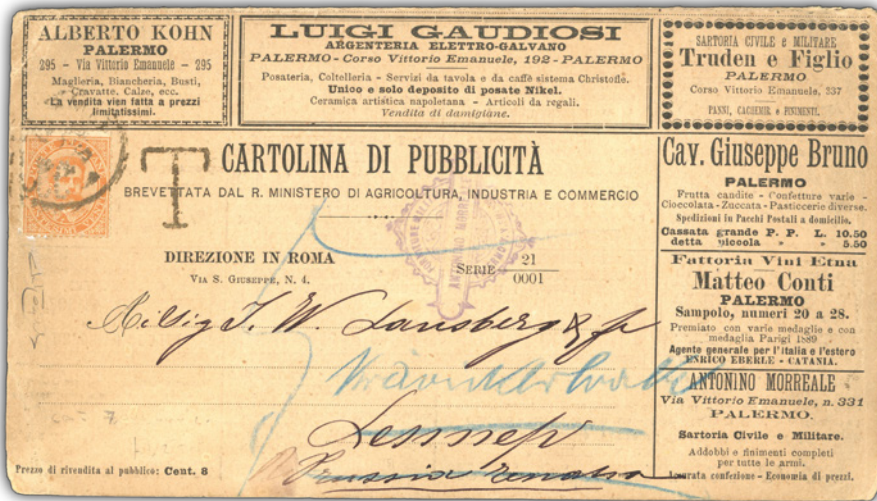 ALBERTO KOHN
PALERMO
295 - Via Vittorio Emanuele - 295
Maglieria, Biancheria, Busti,
Cravatte, Calze, ecc.
La vendita vien fatta a prezzi
limitatissimi.
LUIGI GAUDIOSI
ARGENTERIA ELETTRO-GALVANO
PALERMO - Corso Vittorio Emanuele, 192 - PALERMO
Posateria, Coltelleria - Servizi da tavola e da caffè sistema Christofle.
Unico e solo deposito di posate Nikel.
Ceramica artistica napoletana - Articoli da regali.
Vendita di damigiane.
SARTORIA CIVILE e MILITARE
Truden e Figlio
PALERMO
Corso Vittorio Emanuele, 337
PANNI, CACHEMIR e FINIMENTI.
T
CARTOLINA DI PUBBLICITÀ
BREVETTATA DAL R. MINISTERO DI AGRICOLTURA, INDUSTRIA E COMMERCIO
DIREZIONE IN ROMA
VIA S. GIUSEPPE, N. 4.
SERIE 21
0001
J. W. Lansberg & f
Lennep
Prussia renana
Prezzo di rivendita al pubblico: Cent. 8
Cav. Giuseppe Bruno
PALERMO
Frutta candite - Confetture varie -
Cioccolata - Zuccata - Pasticcerie diverse.
Spedizioni in Pacchi Postali a domicilio.
Cassata grande P. P. L. 10.50
detta piccola » » 5.50
Fattoria Vini Etna
Matteo Conti
PALERMO
Sampolo, numeri 20 a 28.
Premiato con varie medaglie e con
medaglia Parigi 1889
Agente generale per l'Italia e l'estero
ENRICO EBERLE - CATANIA.
ANTONINO MORREALE
Via Vittorio Emanuele, n. 331
PALERMO.
Sartoria Civile e Militare.
Addobbi e finimenti completi
per tutte le armi.
Accurata confezione - Economia di prezzi.